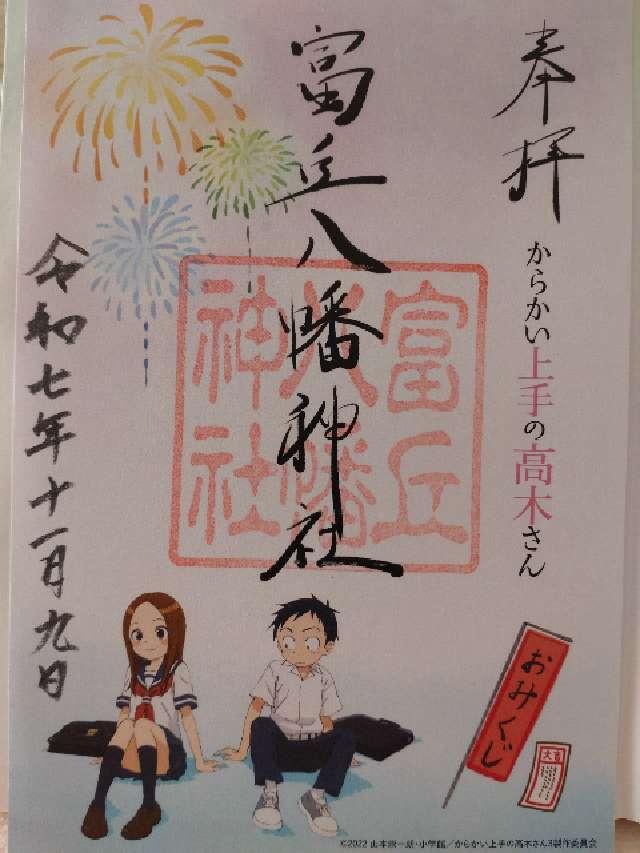 奉拝
からかい上手の高木さん
富丘八幡神社
富丘
八幡
神社
令和七年十一月九日
おみくじ
大吉
©2022 山本崇一朗・小学館／からかい上手の高木さん3製作委員会